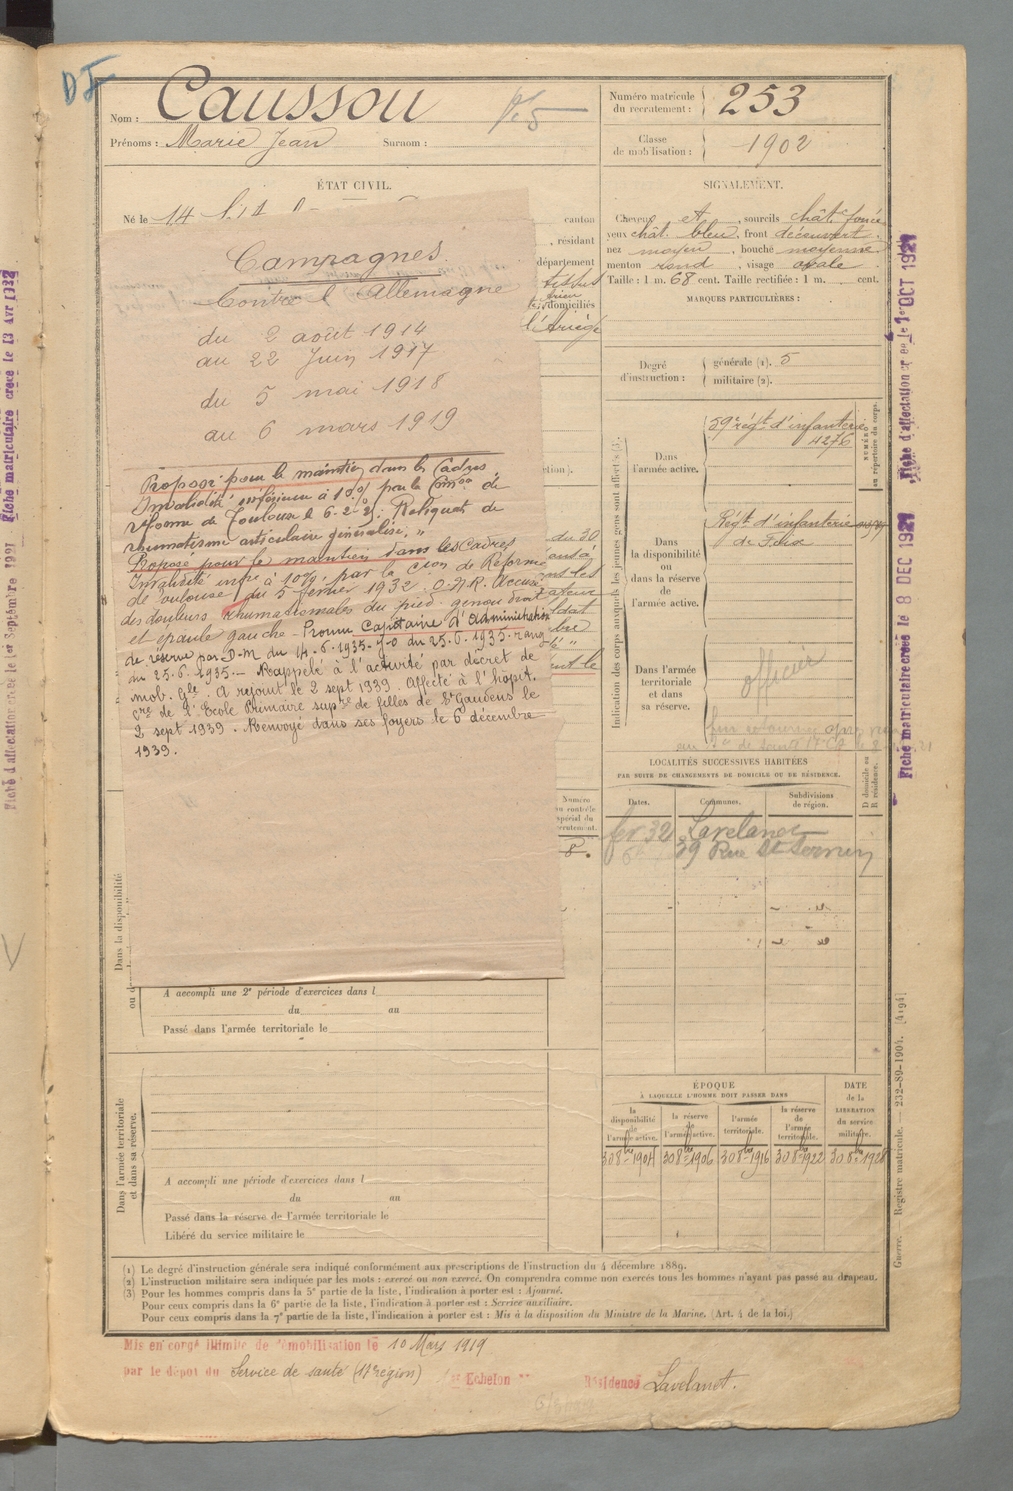 Nom : Caussou
Prénoms : Marie Jean Surnom :
Numéro matricule
du recrutement : 253
Classe
de mobilisation : 1902
ÉTAT CIVIL.
Né le 14
canton
, résidant
département
tissus
domiciliés
l'Ariège
Campagnes
Contre l'Allemagne
du 2 août 1914
au 22 Juin 1917
du 5 mai 1918
au 6 mars 1919
Proposé pour le maintien dans les Cadres.
Invalidité inférieure à 10% par la Comon de
réforme de Toulouse le 6-2-2 Reliquat de
rhumatisme articulaire généralisé. "
Proposé pour le maintien dans les cadres
Invalidité infre à 10% par la Cion de Réforme
de Toulouse du 5 février 1932. O.N.R. Accuse
des douleurs rhumatismales du pied - genou droit
et épaule gauche - Promu Capitaine d'administration
de réserve par D.M du 14.6.1935 - J.O du 25.6.1935 - rang
du 25.6.1935. - Rappelé à l'activité par décret de
mob. Gle. A rejoint le 2 sept 1939. Affecté à l'hôpit.
cre de l'Ecole Primaire supre de filles de St Gaudens le
2 sept 1939. Renvoyé dans ses foyers le 6 décembre
1939.
SIGNALEMENT.
Cheveux et , sourcils chât. foncé
yeux chât. bleu, front découvert,
nez moyen , bouche moyenne
menton rond , visage ovale
Taille : 1 m. 68 cent. Taille rectifiée : 1 m. cent.
MARQUES PARTICULIÈRES :
Degré
d'instruction :
générale (1). 5
militaire (2).
Indication des corps auxquels les jeunes gens sont affectés (3).
NUMÉRO
au répertoire du corps.
Dans
l'armée active.
59e régt d'infanterie
4276
Dans
la disponibilité
ou
dans la réserve
de
l'armée active.
Régt d'infanterie
de Foix
Dans l'armée
territoriale
et dans
sa réserve.
officier
LOCALITÉS SUCCESSIVES HABITÉES
PAR SUITE DE CHANGEMENTS DE DOMICILE OU DE RÉSIDENCE.
Dates. Communes. Subdivisions
de région.
D domicile ou
R résidence.
fer 32 Lavelanet
39 Rue St Sernin
Numéro
au contrôle
spécial du
recrutement.
8.
Dans la disponibilité
A accompli une 2e période d'exercices dans l
du au
Passé dans l'armée territoriale le
Dans l'armée territoriale
et dans sa réserve.
A accompli une période d'exercices dans l
du au
Passé dans la réserve de l'armée territoriale le
Libéré du service militaire le
ÉPOQUE
À LAQUELLE L'HOMME DOIT PASSER DANS
DATE
de la
LIBÉRATION
du service
militaire.
la
disponibilité
de
l'armée active.
la réserve
de
l'armée active.
l'armée
territoriale.
la réserve
de
l'armée
territoriale.
30 8bre 1904 30 8bre 1906 30 8bre 1916 30 8bre 1922 30 8bre 1928
(1) Le degré d'instruction générale sera indiqué conformément aux prescriptions de l'instruction du 4 décembre 1889.
(2) L'instruction militaire sera indiquée par les mots : exercé ou non exercé. On comprendra comme non exercés tous les hommes n'ayant pas passé au drapeau.
(3) Pour les hommes compris dans la 5e partie de la liste, l'indication à porter est : Ajourné.
Pour ceux compris dans la 6e partie de la liste, l'indication à porter est : Service auxiliaire.
Pour ceux compris dans la 7e partie de la liste, l'indication à porter est : Mis à la disposition du Ministre de la Marine. (Art. 4 de la loi.)
Mis en congé illimité de démobilisation le 10 Mars 1919
par le dépôt du Service de santé (17e région) Echelon Résidence Lavelanet.
Guerre. — Registre matricule. — 232-89-1904. [4194]
Fiche d'affectation créée le 1er OCT 1921
Fiche matriculaire créée le 8 DEC 1921
Fiche matriculaire créée le 13 Avr 1922
Fiche d'affectation créée le 1er Septembre 1921